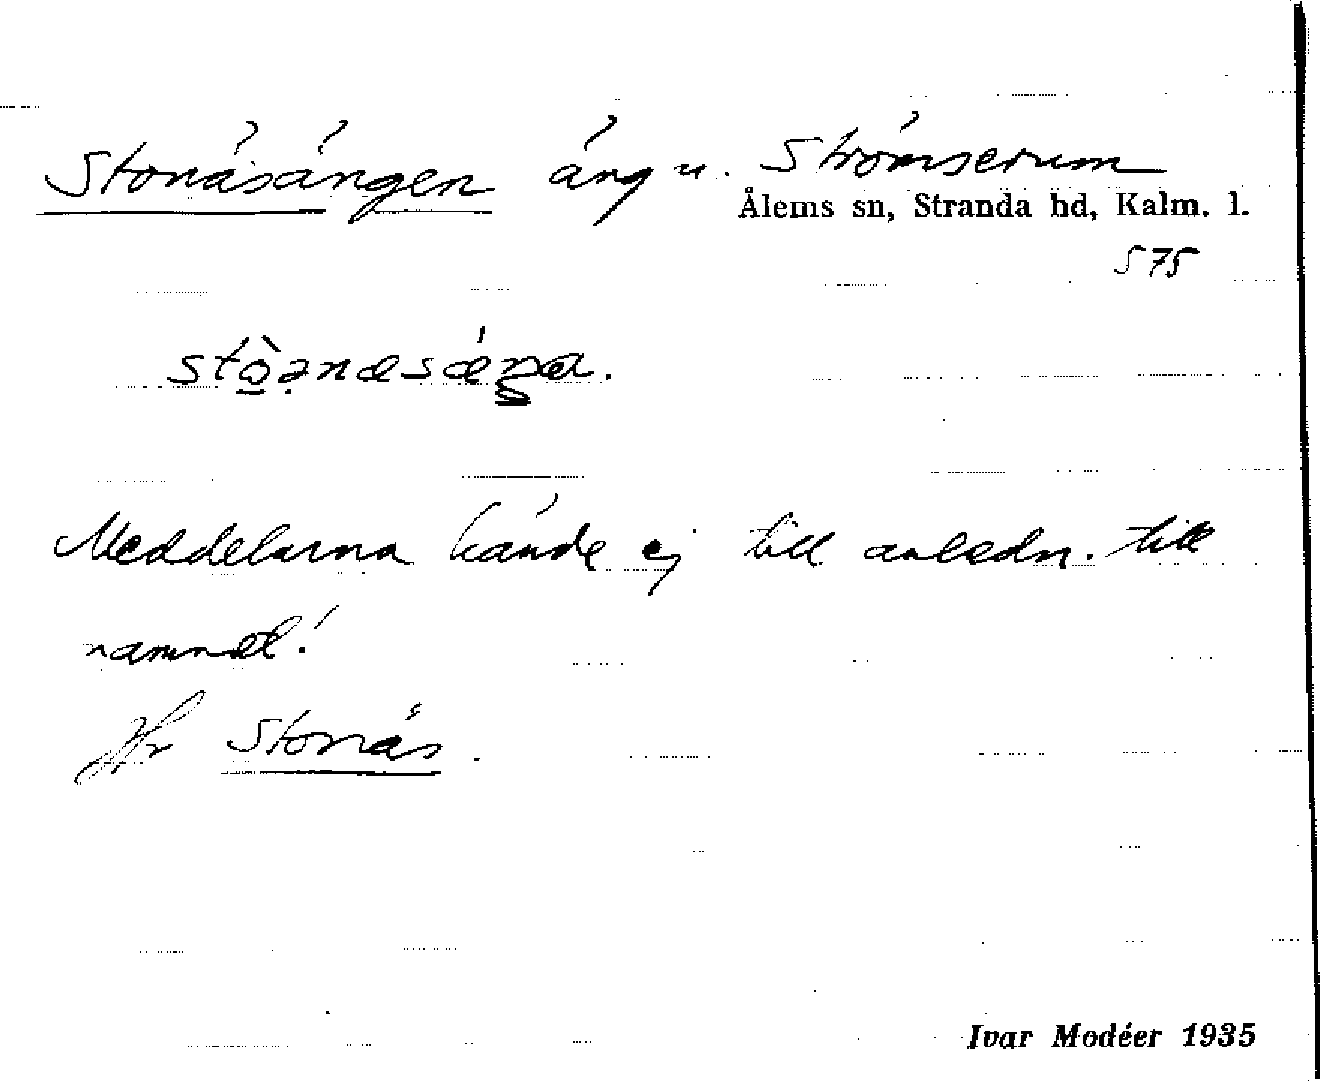 Stonäsängen äng u. Strömserum
Ålems sn, Stranda hd, Kalm. l.
575
Meddelarna kände ej till anledn. till
namnet!
Jfr Stonäs.
Ivar Modéer 1935